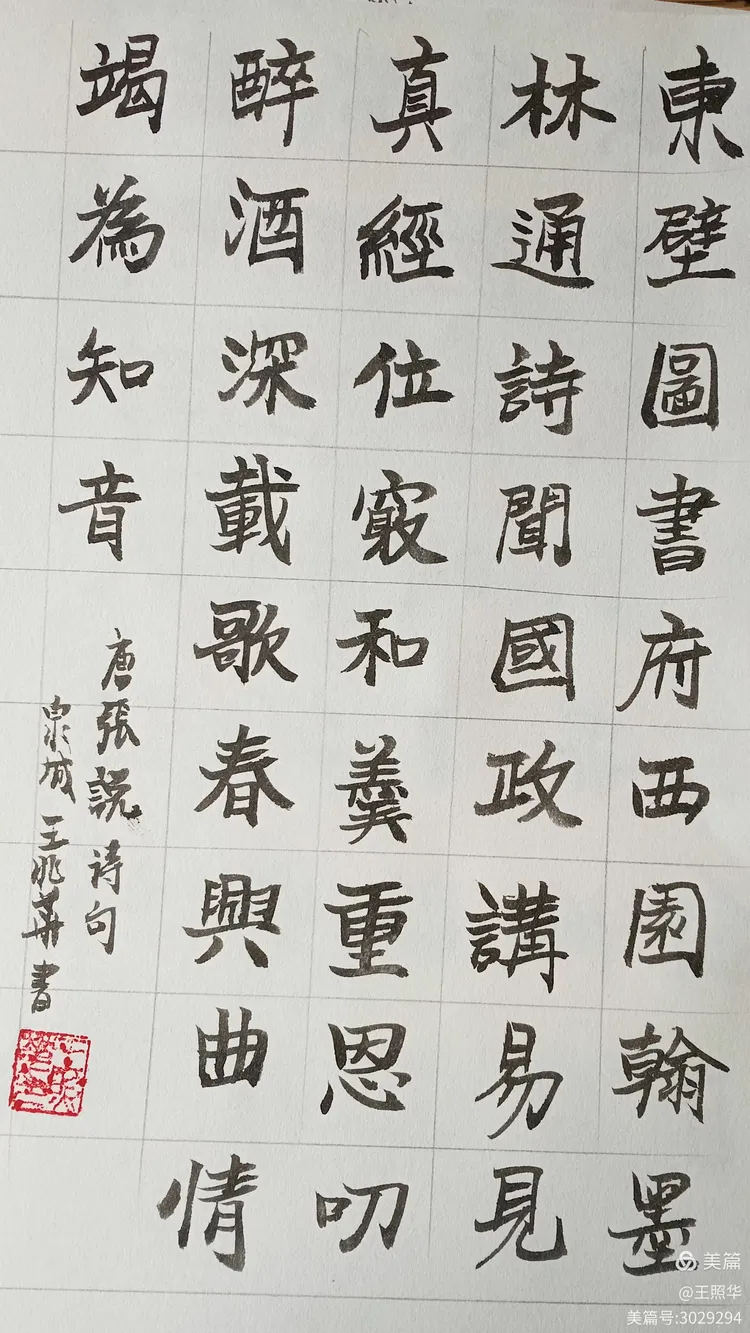 東壁圖書府西園翰墨
林通詩聞國政講易見
真經位竊和羹重恩叨
醉酒深載歌春興曲情
竭為知音
唐張說詩句
泉城王兆華書
美篇
@王照华
美篇号:3029294